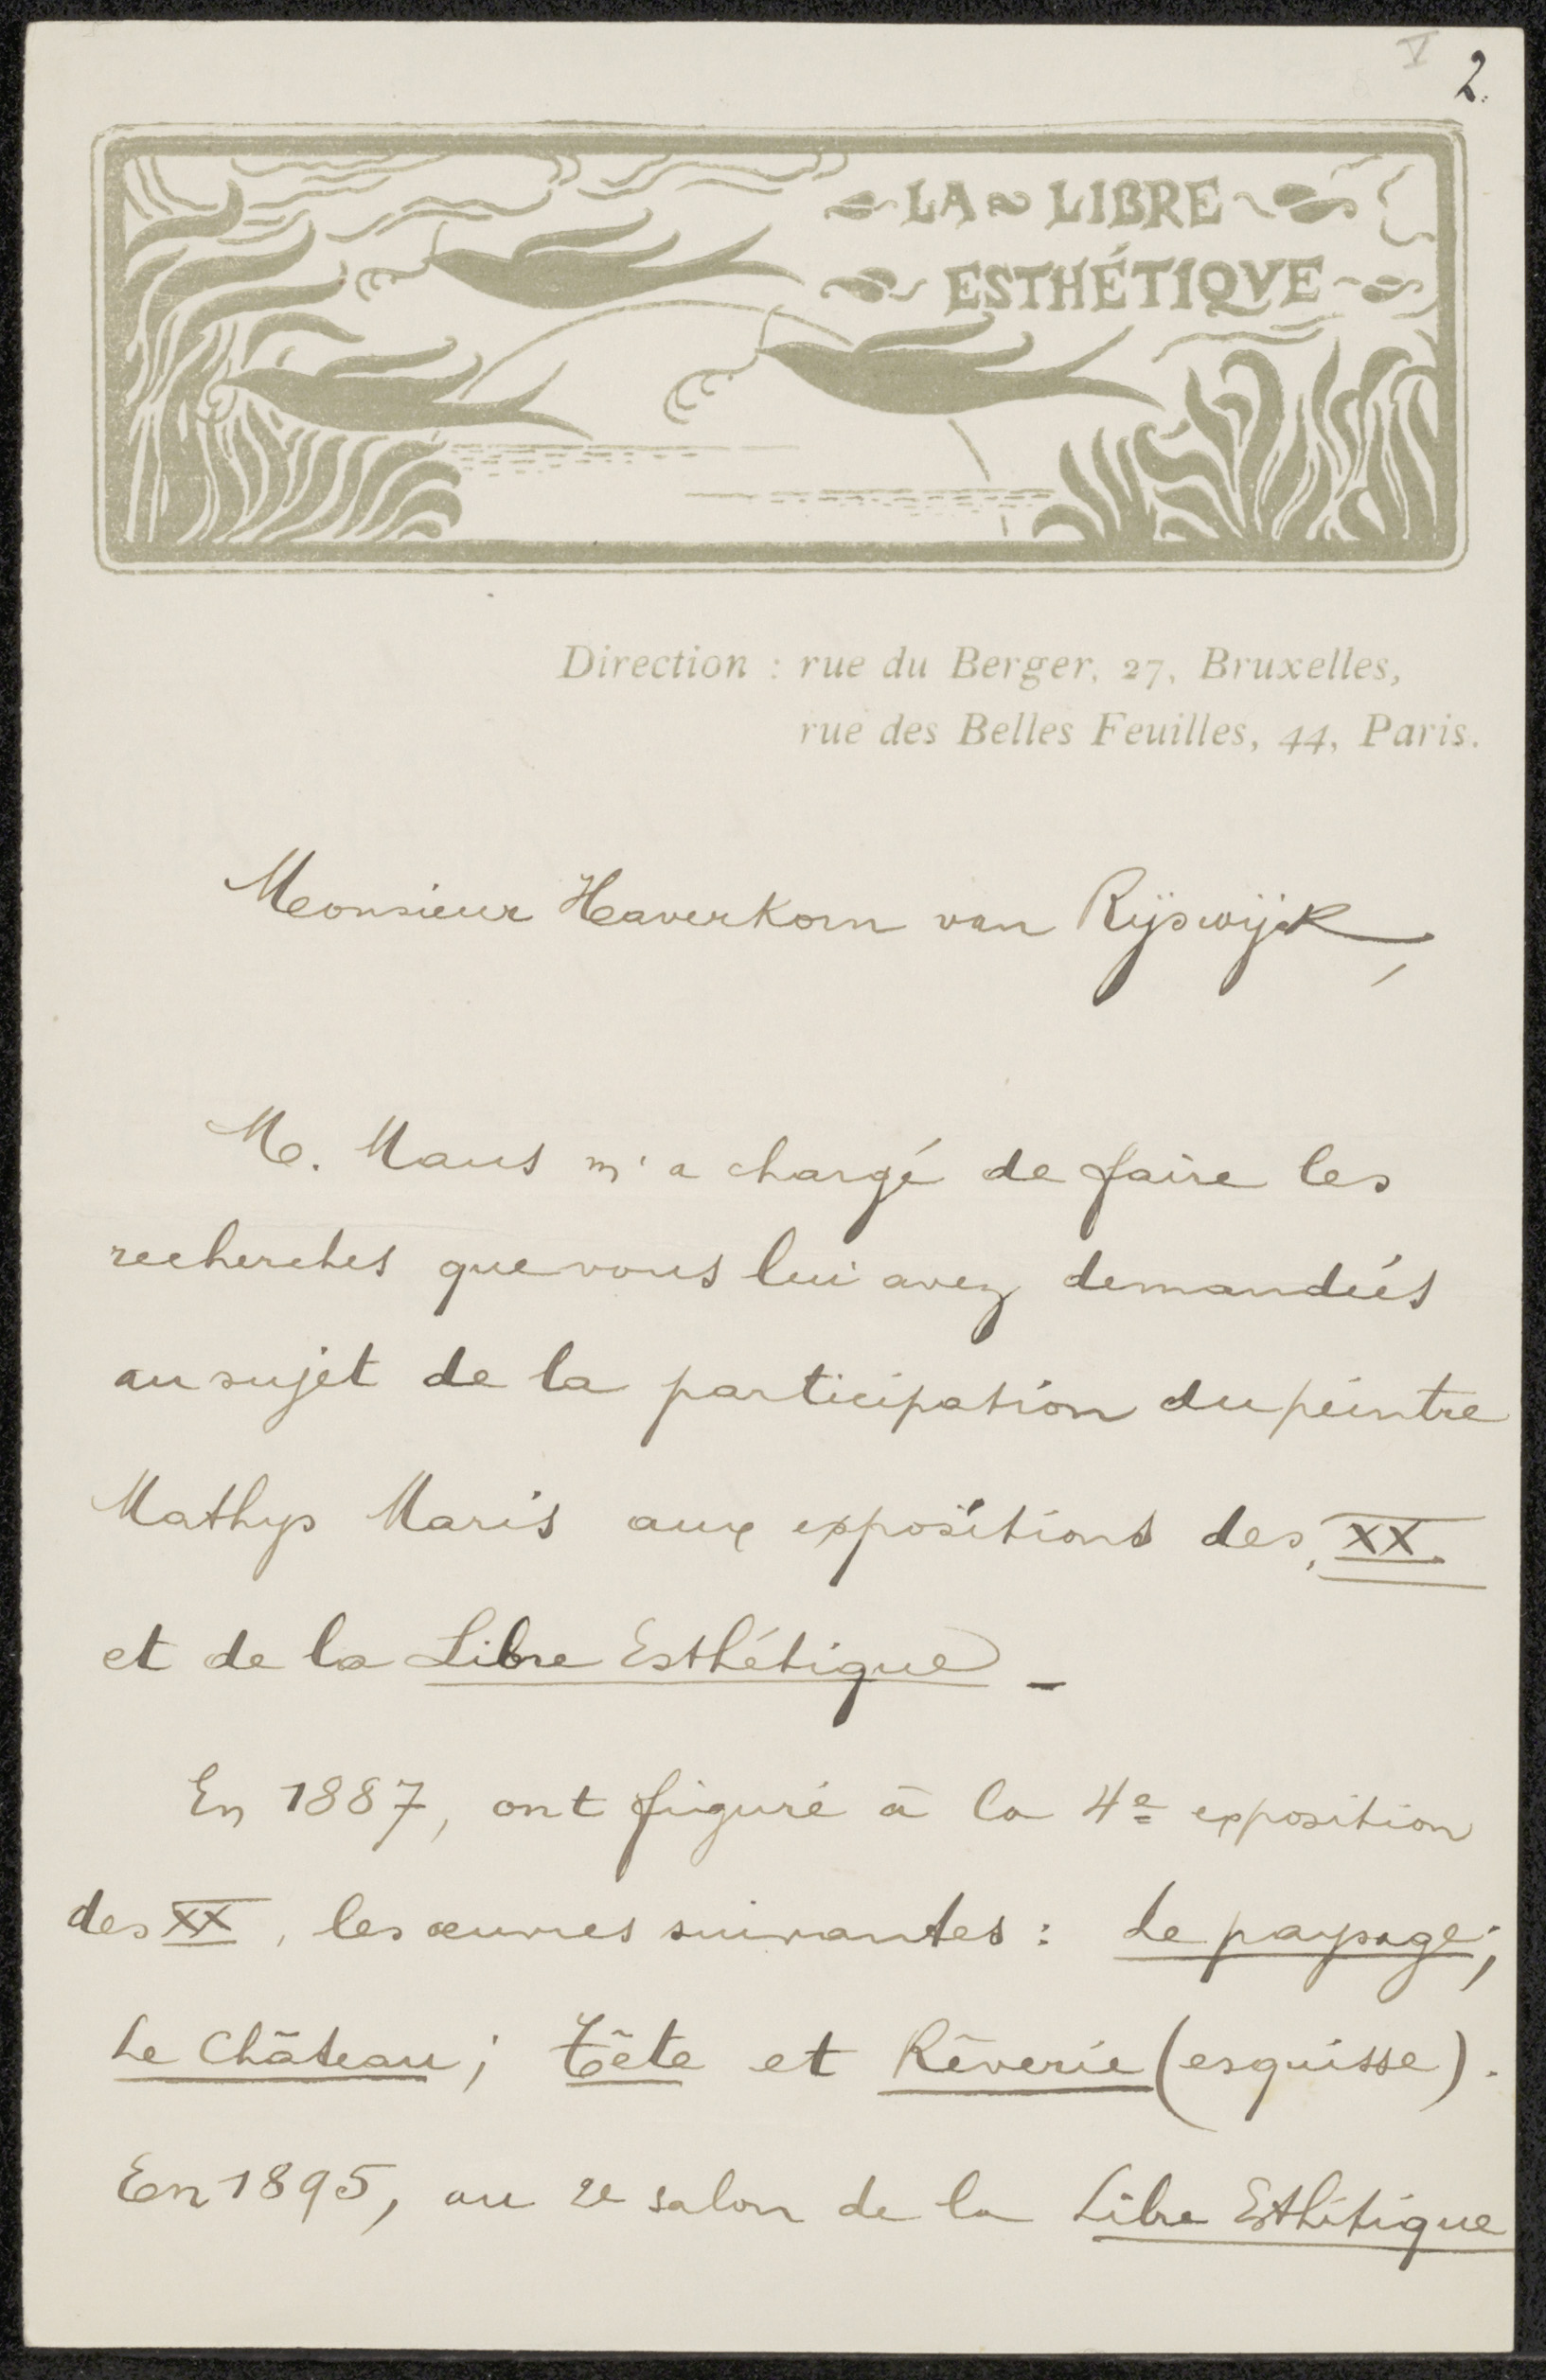 V 2.
LA LIBRE
ESTHÉTIQVE
Direction : rue du Berger, 27, Bruxelles,
rue des Belles Feuilles, 44, Paris.
Monsieur Haverkorn van Rijswijk,
M. Maus m'a chargé de faire les
recherches que vous lui avez demandées
au sujet de la participation du peintre
Mathys Maris aux expositions des XX
et de la Libre Esthétique -
En 1887, ont figuré à la 4e exposition
des XX, les œuvres suivantes : Le paysage;
Le Château; Tête et Rêverie (esquisse).
En 1895, au 2e salon de la Libre Esthétique